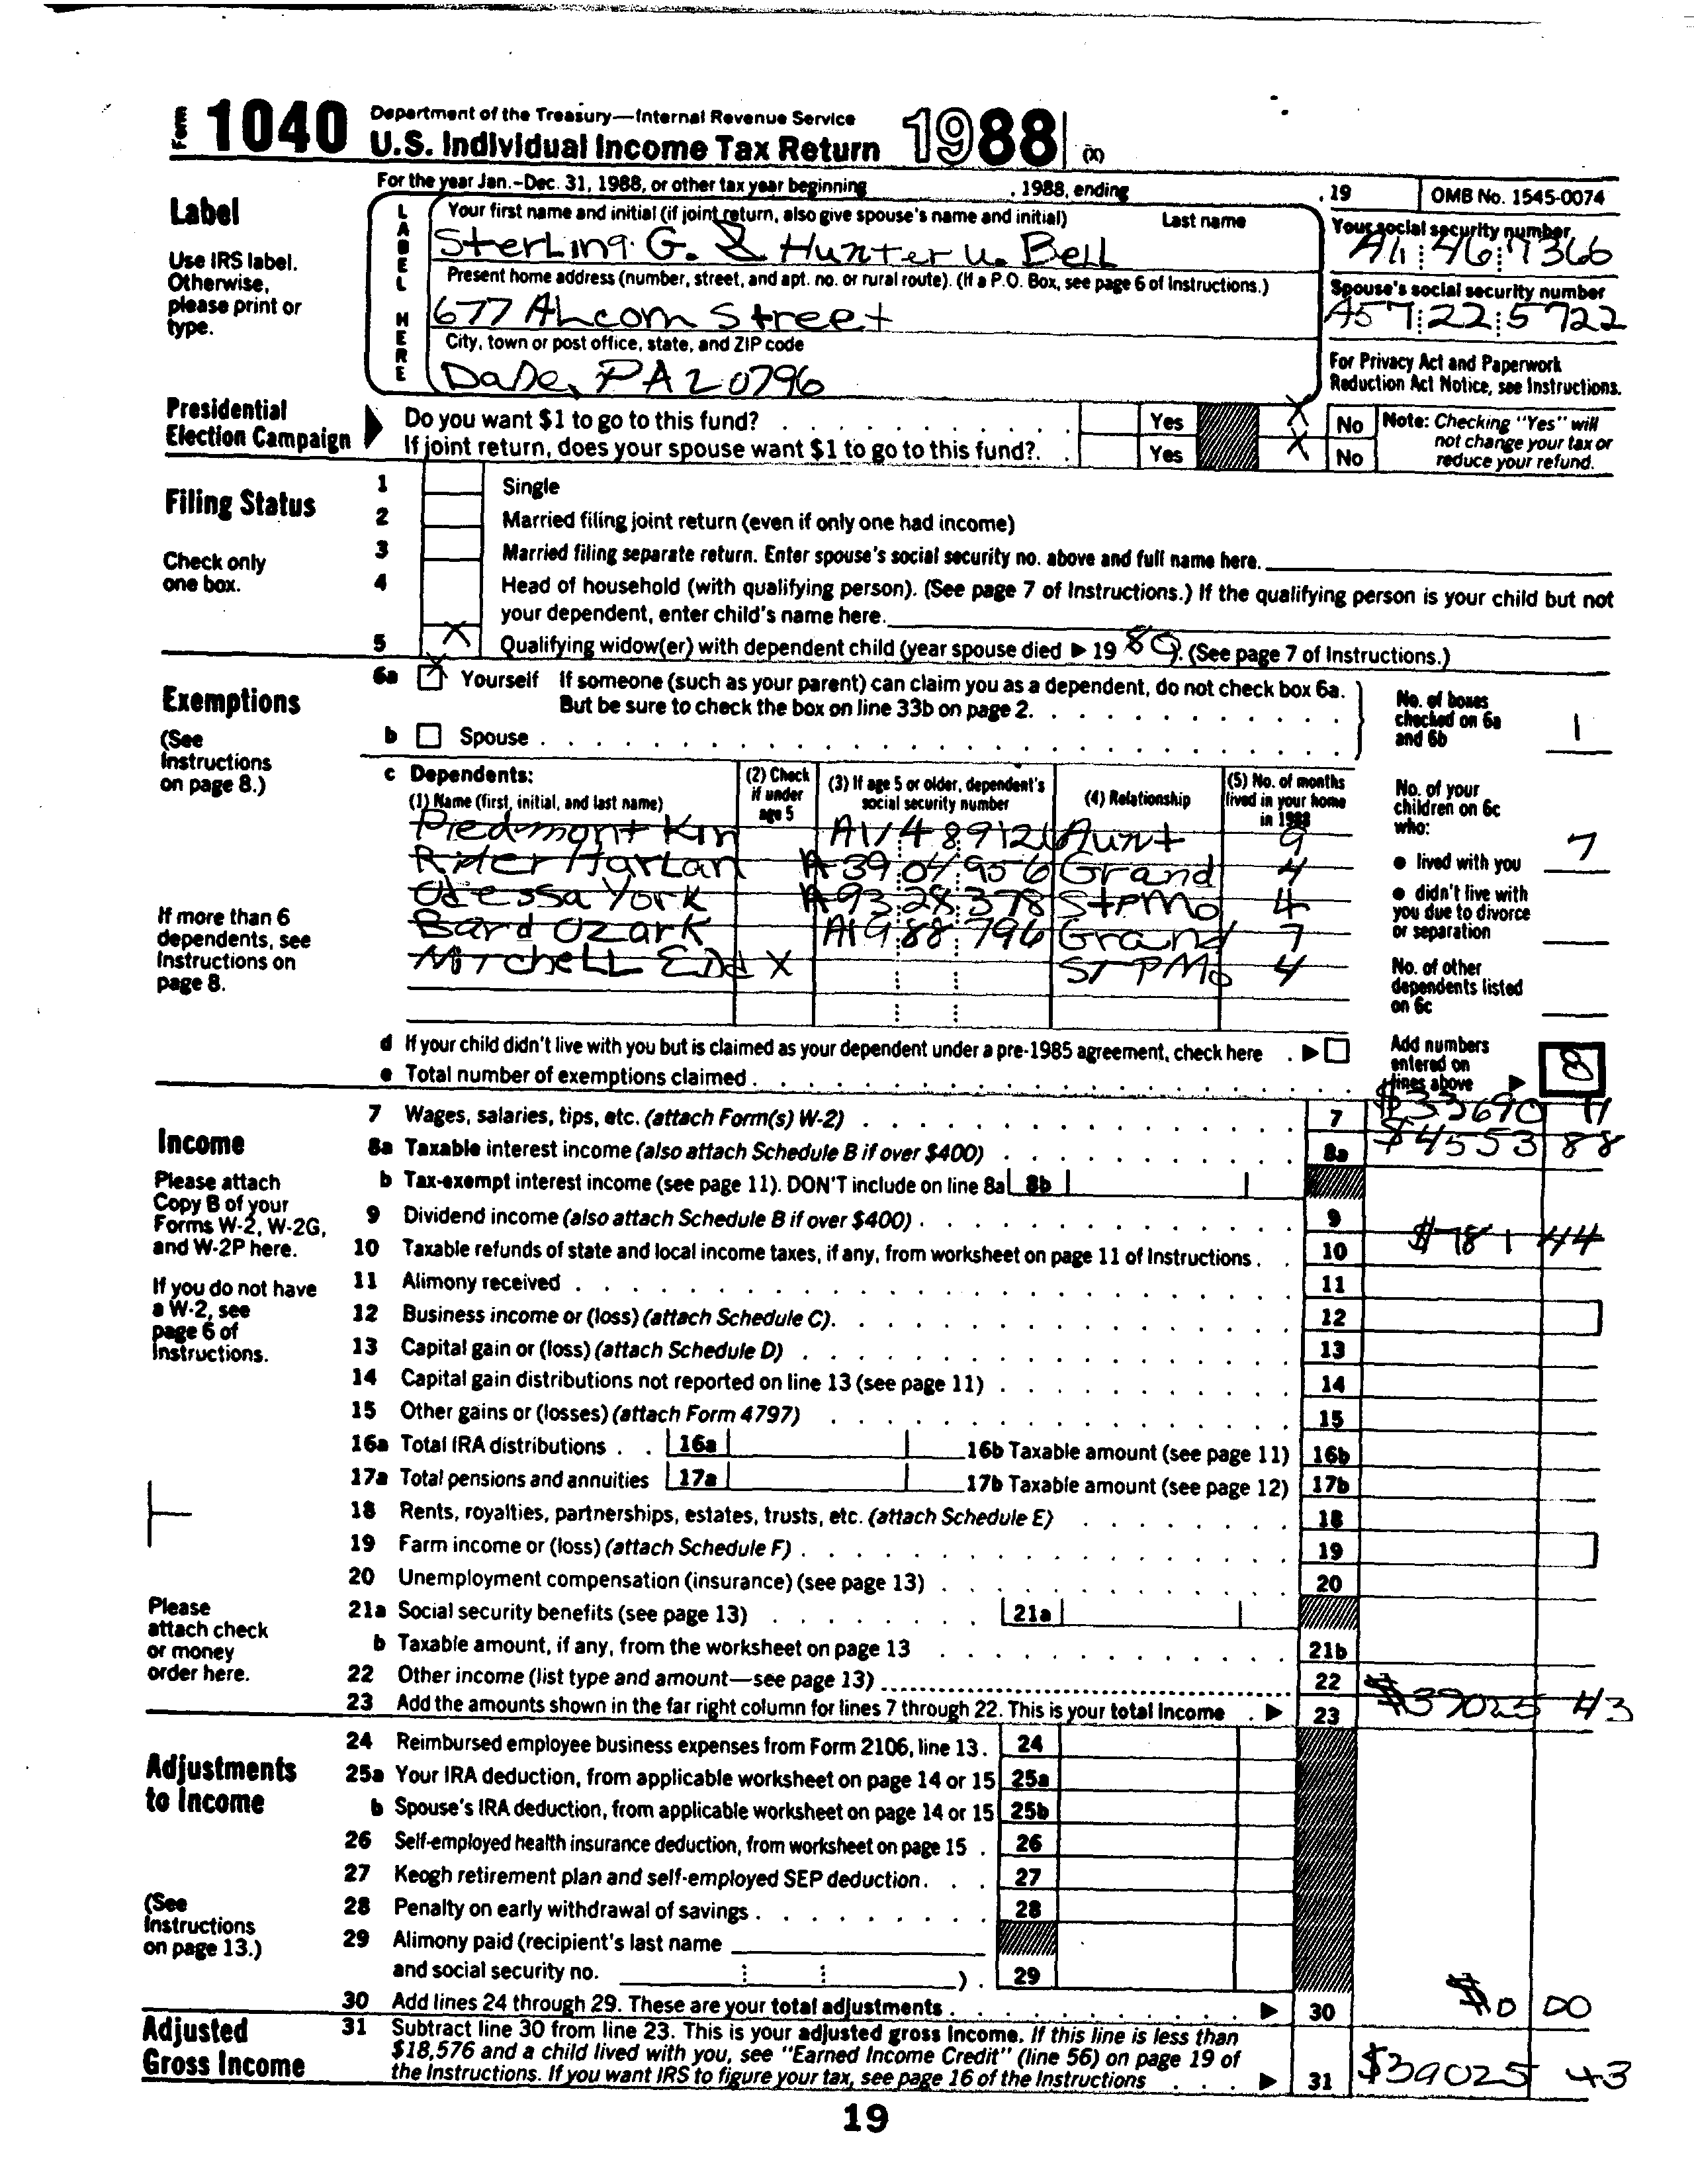 Form 1040 Department of the Treasury—Internal Revenue Service
U.S. Individual Income Tax Return 1988 (X)
For the year Jan.-Dec. 31, 1988, or other tax year beginning , 1988, ending , 19 OMB No. 1545-0074
Label
Use IRS label. Otherwise, please print or type.
LABEL HERE
Your first name and initial (if joint return, also give spouse's name and initial) Last name
Sterling G. & Hunter U. Bell
Your social security number
46 7366
Present home address (number, street, and apt. no. or rural route). (If a P.O. Box, see page 6 of Instructions.)
677 Alcorn Street
Spouse's social security number
A57 22 5722
City, town or post office, state, and ZIP code
Dade, PA 20796
For Privacy Act and Paperwork Reduction Act Notice, see Instructions.
Presidential Election Campaign
Do you want $1 to go to this fund? Yes X No
If joint return, does your spouse want $1 to go to this fund? Yes X No
Note: Checking "Yes" will not change your tax or reduce your refund.
Filing Status
Check only one box.
1 Single
2 Married filing joint return (even if only one had income)
3 Married filing separate return. Enter spouse's social security no. above and full name here.
4 Head of household (with qualifying person). (See page 7 of Instructions.) If the qualifying person is your child but not
your dependent, enter child's name here.
5 X Qualifying widow(er) with dependent child (year spouse died ▶ 19 80). (See page 7 of Instructions.)
Exemptions
(See Instructions on page 8.)
6a X Yourself If someone (such as your parent) can claim you as a dependent, do not check box 6a.
But be sure to check the box on line 33b on page 2.
b Spouse
No. of boxes checked on 6a and 6b 1
c Dependents:
(1) Name (first, initial, and last name) (2) Check if under age 5 (3) If age 5 or older, dependent's social security number (4) Relationship (5) No. of months lived in your home in 1988
Piedmont Kin A11 48 9126 Aunt 9
Rider Harlan A39 04 956 Grand 4
Odessa York A93 28 378 StPMo 4
Bard Ozark A19 88 796 Grand 7
Mitchell End X STPMo 4
If more than 6 dependents, see Instructions on page 8.
No. of your children on 6c who:
● lived with you 7
● didn't live with you due to divorce or separation
No. of other dependents listed on 6c
d If your child didn't live with you but is claimed as your dependent under a pre-1985 agreement, check here ▶
e Total number of exemptions claimed
Add numbers entered on lines above ▶ 8
Income
Please attach Copy B of your Forms W-2, W-2G, and W-2P here.
If you do not have a W-2, see page 6 of Instructions.
Please attach check or money order here.
7 Wages, salaries, tips, etc. (attach Form(s) W-2) 7 $33690 11
8a Taxable interest income (also attach Schedule B if over $400) 8a $4553 88
b Tax-exempt interest income (see page 11). DON'T include on line 8a 8b
9 Dividend income (also attach Schedule B if over $400) 9 $781 44
10 Taxable refunds of state and local income taxes, if any, from worksheet on page 11 of Instructions 10
11 Alimony received 11
12 Business income or (loss) (attach Schedule C) 12
13 Capital gain or (loss) (attach Schedule D) 13
14 Capital gain distributions not reported on line 13 (see page 11) 14
15 Other gains or (losses) (attach Form 4797) 15
16a Total IRA distributions 16a 16b Taxable amount (see page 11) 16b
17a Total pensions and annuities 17a 17b Taxable amount (see page 12) 17b
18 Rents, royalties, partnerships, estates, trusts, etc. (attach Schedule E) 18
19 Farm income or (loss) (attach Schedule F) 19
20 Unemployment compensation (insurance) (see page 13) 20
21a Social security benefits (see page 13) 21a
b Taxable amount, if any, from the worksheet on page 13 21b
22 Other income (list type and amount—see page 13) 22
23 Add the amounts shown in the far right column for lines 7 through 22. This is your total income ▶ 23 $39025 43
Adjustments to Income
(See Instructions on page 13.)
24 Reimbursed employee business expenses from Form 2106, line 13. 24
25a Your IRA deduction, from applicable worksheet on page 14 or 15 25a
b Spouse's IRA deduction, from applicable worksheet on page 14 or 15 25b
26 Self-employed health insurance deduction, from worksheet on page 15 26
27 Keogh retirement plan and self-employed SEP deduction 27
28 Penalty on early withdrawal of savings 28
29 Alimony paid (recipient's last name
and social security no. ) 29
30 Add lines 24 through 29. These are your total adjustments ▶ 30 $0 00
Adjusted Gross Income
31 Subtract line 30 from line 23. This is your adjusted gross income. If this line is less than
$18,576 and a child lived with you, see "Earned Income Credit" (line 56) on page 19 of
the Instructions. If you want IRS to figure your tax, see page 16 of the Instructions ▶ 31 $39025 43
19